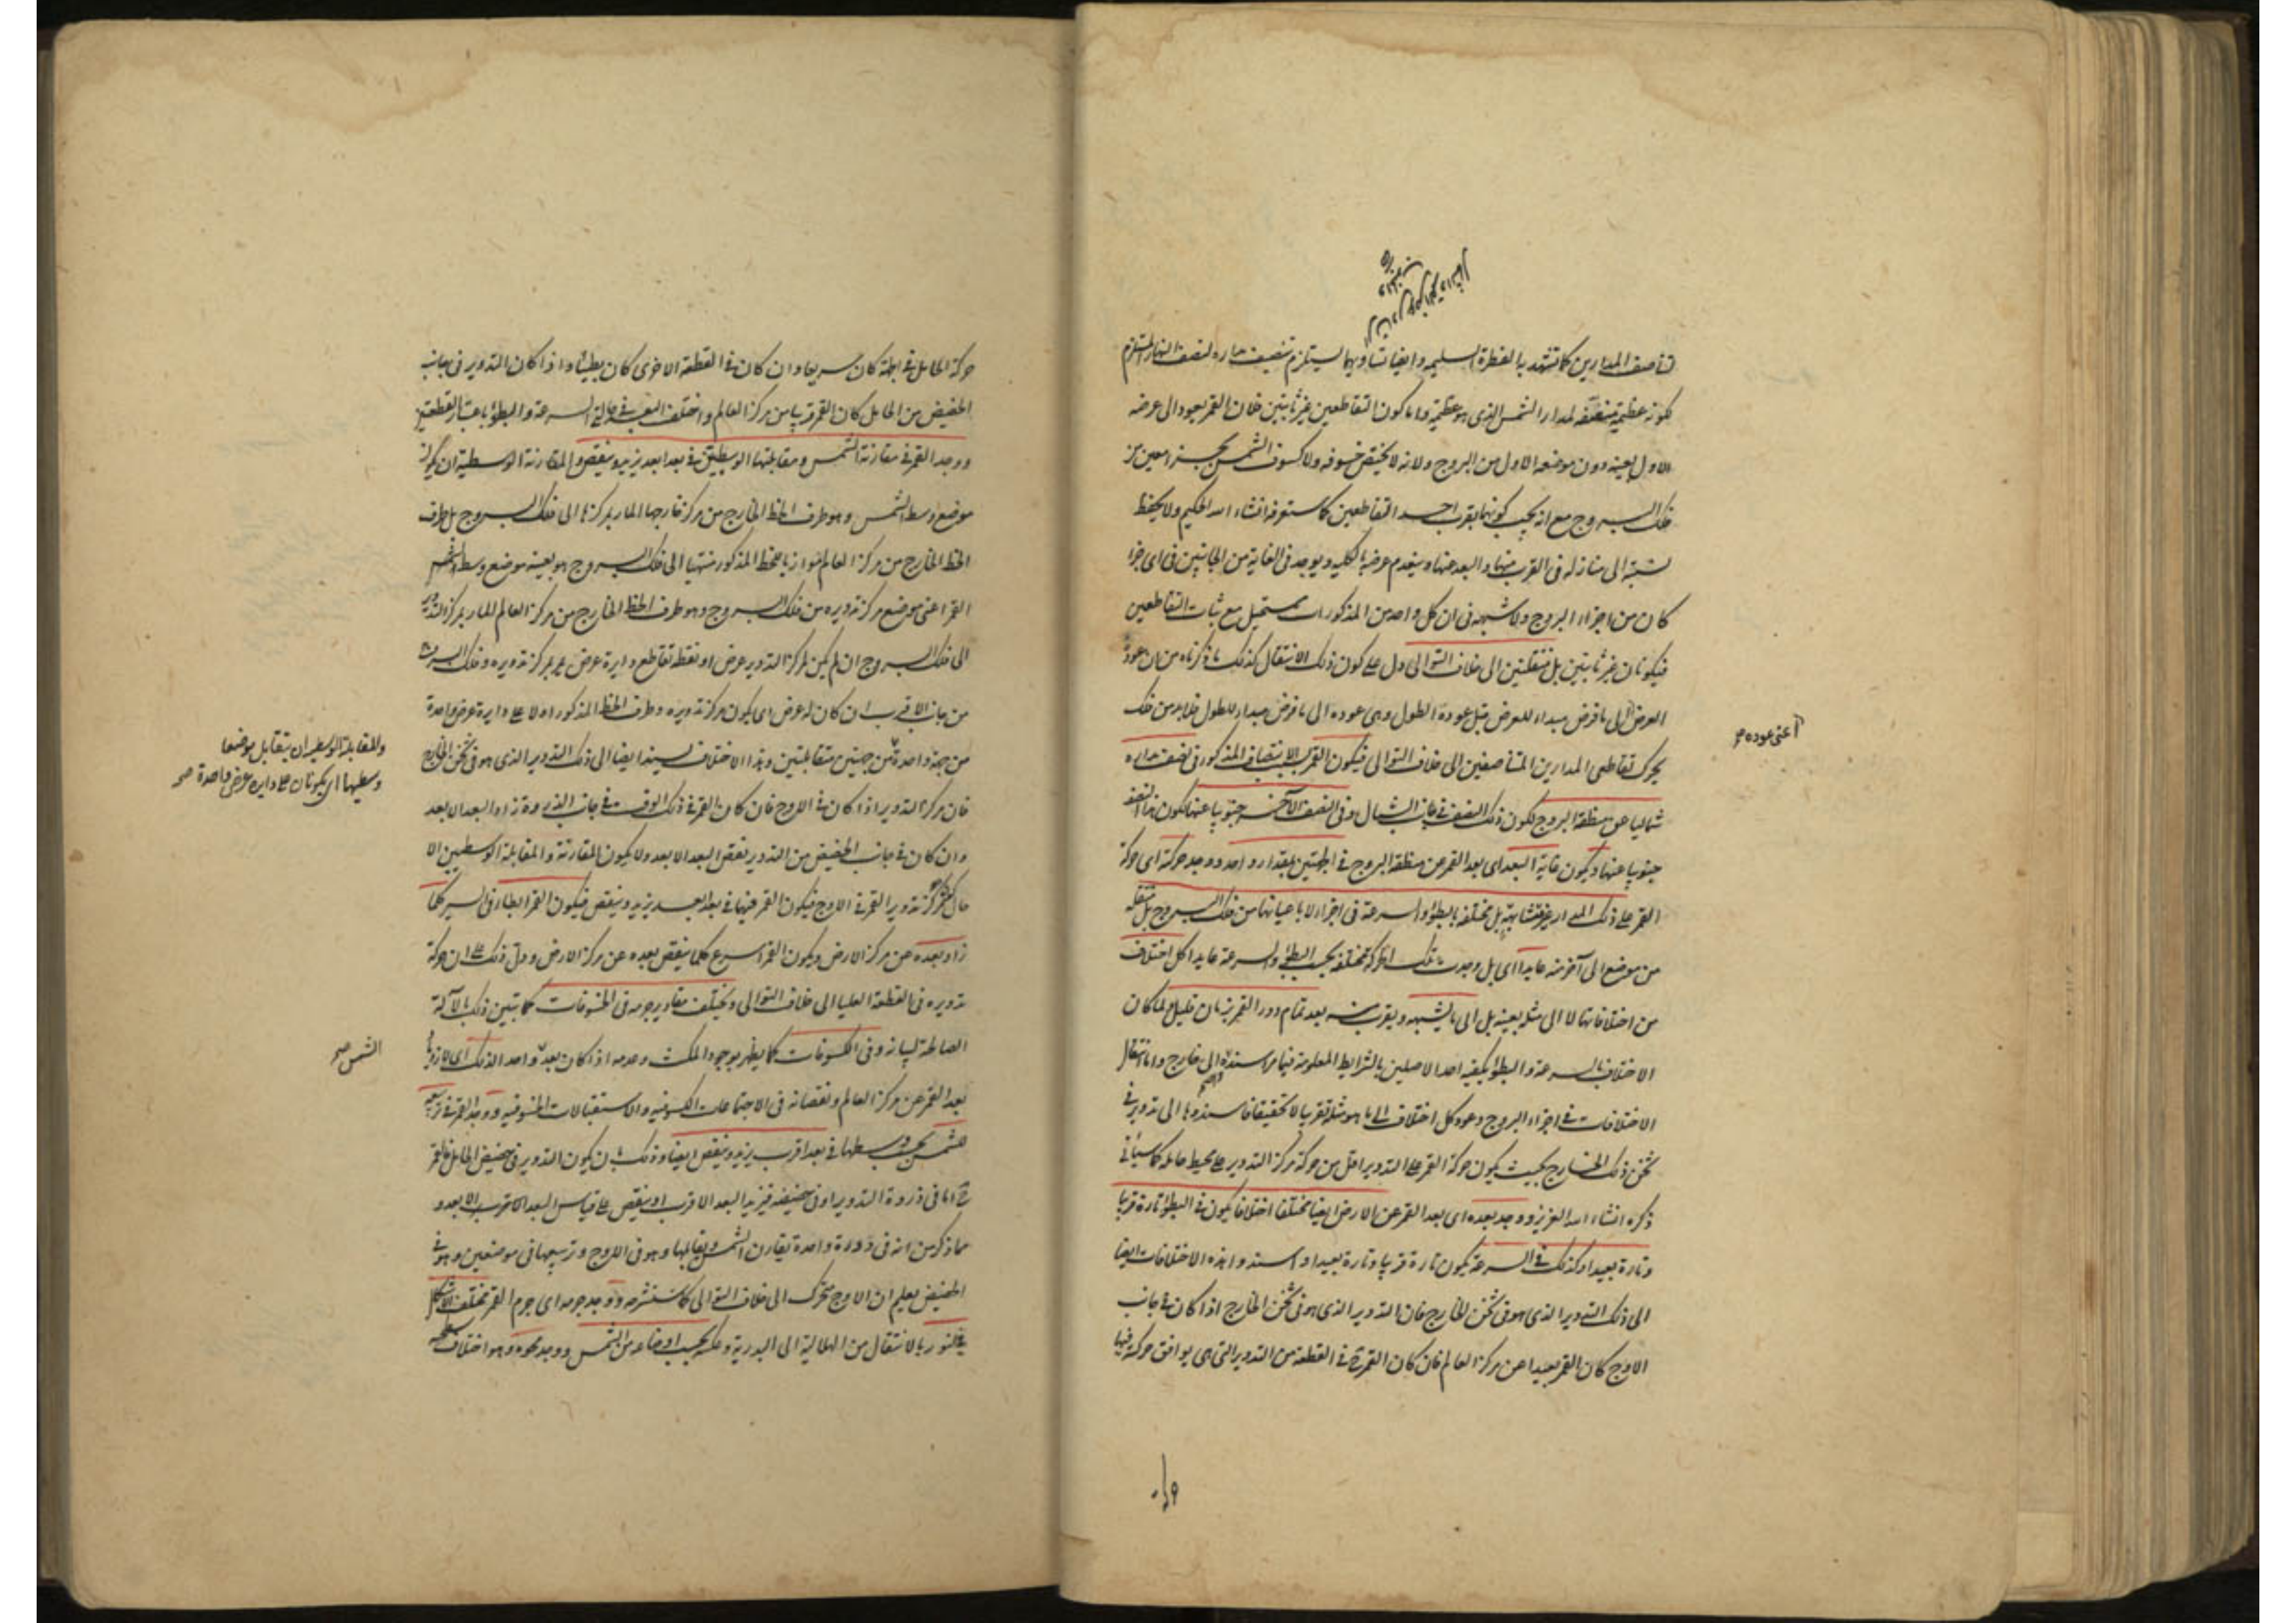 تناصف المدارين كما تشهد به الفطرة السليمة وايضا تساويهما يستلزم تنصيف مداره لنصف النهار المستلزم
لكونه عظيمة منصفة لمدار الشمس الذي هو عظيمة واما كون التقاطعين غير ثابتين فلان القمر يعود الى عرضه
الاول بعينه دون موضعه الاول من البروج ولانه لا يختص خسوفه ولا كسوف الشمس بجزء معين من
فلك البروج مع انه يجب كونهما بقرب احد التقاطعين كما ستعرفه انشاء الله الحكيم ولا يحفظ
نسبته الى منازله في القرب منها والبعد عنها وينعدم عرضه بالكلية ويوجد في الغاية من الجانبين في اى جزء
كان من اجزاء البروج ولا شبهة في ان كل واحد من المذكورات مستحيل مع ثبات التقاطعين
فيكونان غير ثابتين بل منتقلين الى خلاف التوالى دل على كون ذلك الانتقال كذلك ما ذكرناه من ان عودة
العرض الى ما فرض مبداء للعرض قبل عودة الطول وهى عوده الى ما فرض مبداء للطول فلا بد من فلك
اعنى عوده صح
يحرك تقاطعى المدارين المتناصفين الى خلاف التوالى فيكون القمر بالانتصاف المذكور في نصف مداره
شماليا عن منطقة البروج لكون ذلك النصف في جانب الشمال وفى النصف الآخر جنوبيا عنها لكون هذا النصف
جنوبيا عنها ويكون غاية البعد اى بعد القمر عن منطقة البروج في الجهتين بمقدار واحد ووجد حركته اى حركة
القمر على ذلك المدار غير متشابهة بل مختلفة بالبطؤ والسرعة في اجزاء لا باعيانها من فلك البروج بل منتقلة
من موضع الى آخر منه عايدا اى بل وجدت تلك الحركة مختلفة بحسب البطؤ والسرعة عايدا كل اختلاف
من اختلافاتها لا الى مثله بعينه بل الى ما يشبهه ويقرب منه بعد تمام دور القمر بزمان قليل لما كان
الاختلاف بالسرعة والبطؤ يكفيه احد الاصلين بالشرايط المعلومة فيما مر اسندوه الى خارج واما انتقال
الاختلافات في اجزاء البروج وعود كل اختلاف الى ما هو مثله تقريبا لا تحقيقا فاسندوها الى تدوير في
ثخن ذلك الخارج بحيث يكون حركة القمر على التدوير اقل من حركة مركز التدوير على محيط حامله كما سيأتى
ذكره انشاء الله العزيز ووجد بعده اى بعد القمر عن الارض ايضا مختلفا اختلافا يكون في البطؤ تارة قريبا
وتارة بعيدا وكذلك في السرعة يكون تارة قريبا وتارة بعيدا واسندوا هذه الاختلافات ايضا
الى ذلك التدوير الذى هو في ثخن الخارج فان التدوير الذى هو في ثخن الخارج اذا كان في جانب
الاوج كان القمر بعيدا عن مركز العالم فان كان القمر ح في القطعة من التدوير التى هى يوافق حركته فيها
حركة الحامل في الجهة كان سريعا وان كان في القطعة الاخرى كان بطيئا واذا كان التدوير في جانب
الحضيض من الحامل كان القمر قريبا من مركز العالم واختلف البعد في حالة السرعة والبطؤ باعتبار القطعتين
ووجد القمر في مقارنة الشمس ومقابلتها الوسطيتين في بعد ابعد يزيد وينقص والمقارنة الوسطية ان يكون
موضع وسط الشمس وهو طرف الخط الخارج من مركز خارجها المار بمركزها الى فلك البروج بل طرف
الخط الخارج من مركز العالم موازيا للخط المذكور منتهيا الى فلك البروج هو بعينه موضع وسط
القمر اعنى موضع مركز تدويره من فلك البروج وهو طرف الخط الخارج من مركز العالم المار بمركز التدوير
الى فلك البروج ان لم يكن لمركز التدوير عرض او نقطة تقاطع دايرة عرض يمر بمركز تدويره وفلك البروج
من جانب الاقرب ان كان له عرض اى يكون مركز تدويره وطرف الخط المذكور اولا على دايرة عرض واحدة
والمقابلة الوسطية ان يتقابل موضعا
وسطيهما اى يكونان على دايرة عرض واحدة صح
من جهة واحدة من جهتين متقابلتين وهذا الاختلاف يسند ايضا الى ذلك التدوير الذى هو في ثخن الخارج
فان مركز التدوير اذا كان في الاوج فان كان القمر في ذلك الوقت في جانب الذروة زاد البعد الابعد
وان كان في جانب الحضيض من التدوير نقص البعد الابعد ولا يكون المقارنة والمقابلة الوسطيتين الا
حال كون مركز تدوير القمر في الاوج فيكون القمر فيهما في بعد ابعد يزيد وينقص فيكون القمر ابطأ في السير كلما
زاد بعده عن مركز الارض ويكون القمر اسرع كلما ينقص بعده عن مركز الارض ودل ذلك على ان حركة
تدويره في القطعة العليا الى خلاف التوالى ويختلف مقادير جرمه في الخسوفات كما تبين ذلك بالآلة
الصالحة لبيانه وفى الكسوفات كما يظهر بوجود المكث وعدمه اذا كان بعد واحد الذلك اى لازدياد
الشمس صح
بعد القمر عن مركز العالم ونقصانه في الاجتماعات الكسوفية والاستقبالات الخسوفية ووجد القمر في تربيعه
للشمس بحسب وسطها في بعد اقرب يزيد وينقص ايضا وذلك بان يكون التدوير في حضيض الحامل فالقمر
ح اما في ذروة التدوير او في حضيضه فيزيد البعد الاقرب او ينقص على قياس البعد الابعد و
مما ذكر من انه في دورة واحدة يقارن الشمس ويقابلها وهو في الاوج وتربيعها في موضعين وهو في
الحضيض يعلم ان الاوج متحرك الى خلاف التوالى كما سنشرحه ووجد جرمه اى جرم القمر مختلف الاشكال
في النور بالانتقال من الهلالية الى البدرية وعكسه بحسب اوضاعه من الشمس ووجد محوه وهو اختلاف